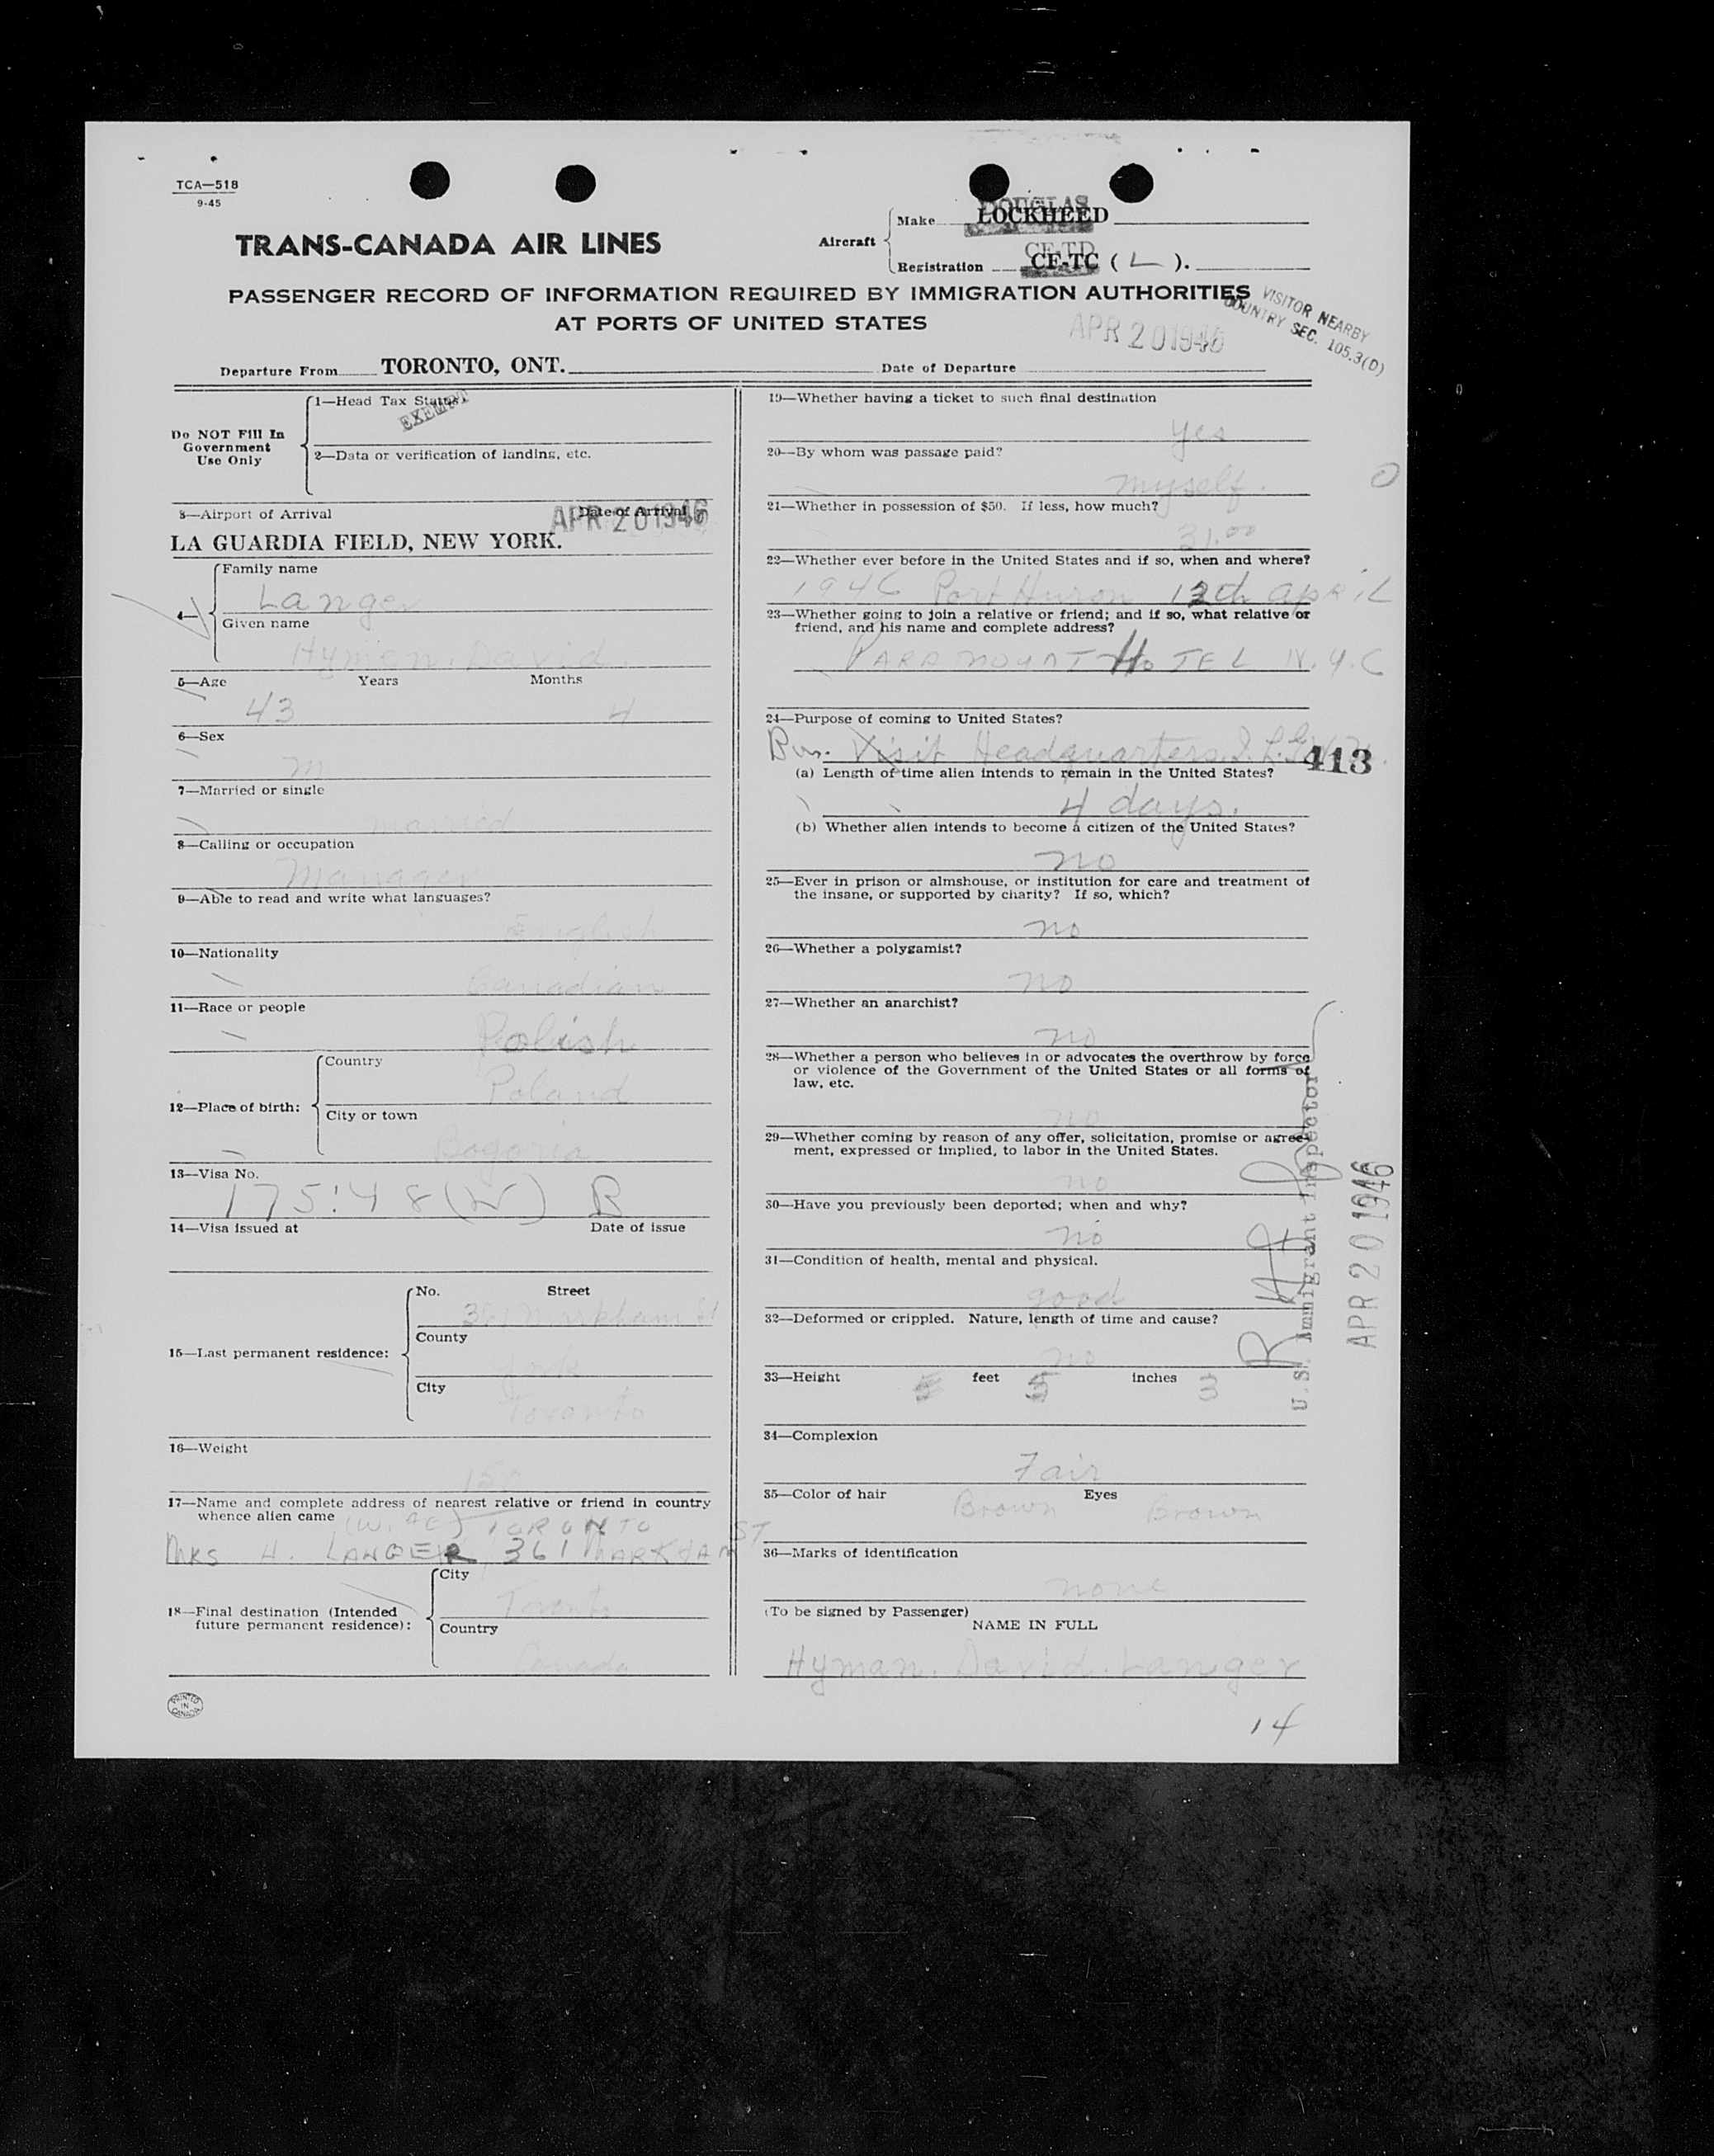 TCA—518
9-45
TRANS-CANADA AIR LINES
Aircraft
Make DOUGLAS LOCKHEED
Registration CF-TD CF-TC ( L ).
PASSENGER RECORD OF INFORMATION REQUIRED BY IMMIGRATION AUTHORITIES
AT PORTS OF UNITED STATES
VISITOR NEARBY
COUNTRY SEC. 105.3(D)
APR 20 1946
Departure From TORONTO, ONT. Date of Departure
Do NOT Fill In
Government
Use Only
1—Head Tax Status
EXEMPT
2—Data or verification of landing, etc.
3—Airport of Arrival Date of Arrival
APR 20 1946
LA GUARDIA FIELD, NEW YORK.
4—
Family name
Langer
Given name
Hyman. David.
5—Age Years Months
43 4
6—Sex
m
7—Married or single
married
8—Calling or occupation
Manager
9—Able to read and write what languages?
English
10—Nationality
Canadian
11—Race or people
Polish
12—Place of birth:
Country
Poland
City or town
Bogoria
13—Visa No.
175:48(W) B
14—Visa issued at Date of issue
15—Last permanent residence:
No. Street
361 Markham St
County
York
City
Toronto
16—Weight
150
17—Name and complete address of nearest relative or friend in country
whence alien came
(WIFE) TORONTO
MRS H. LANGER 361 MARKHAM ST
18—Final destination (Intended
future permanent residence):
City
Toronto
Country
Canada
PRINTED
IN
CANADA
19—Whether having a ticket to such final destination
yes
20—By whom was passage paid?
myself.
21—Whether in possession of $50. If less, how much?
31.00
22—Whether ever before in the United States and if so, when and where?
1946 Port Huron 12th April
23—Whether going to join a relative or friend; and if so, what relative or
friend, and his name and complete address?
PARAMOUNT HOTEL N.Y.C
24—Purpose of coming to United States?
Bus. Visit Headquarters I.L.G.W.U.
413
(a) Length of time alien intends to remain in the United States?
4 days.
(b) Whether alien intends to become a citizen of the United States?
no
25—Ever in prison or almshouse, or institution for care and treatment of
the insane, or supported by charity? If so, which?
no
26—Whether a polygamist?
no
27—Whether an anarchist?
no
28—Whether a person who believes in or advocates the overthrow by force
or violence of the Government of the United States or all forms of
law, etc.
no
29—Whether coming by reason of any offer, solicitation, promise or agree-
ment, expressed or implied, to labor in the United States.
no
30—Have you previously been deported; when and why?
no
31—Condition of health, mental and physical.
good
32—Deformed or crippled. Nature, length of time and cause?
no
33—Height feet 5 inches 3
34—Complexion
Fair
35—Color of hair Brown Eyes Brown
36—Marks of identification
none
(To be signed by Passenger)
NAME IN FULL
Hyman. David. Langer
14
U.S. Immigrant Inspector
APR 20 1946